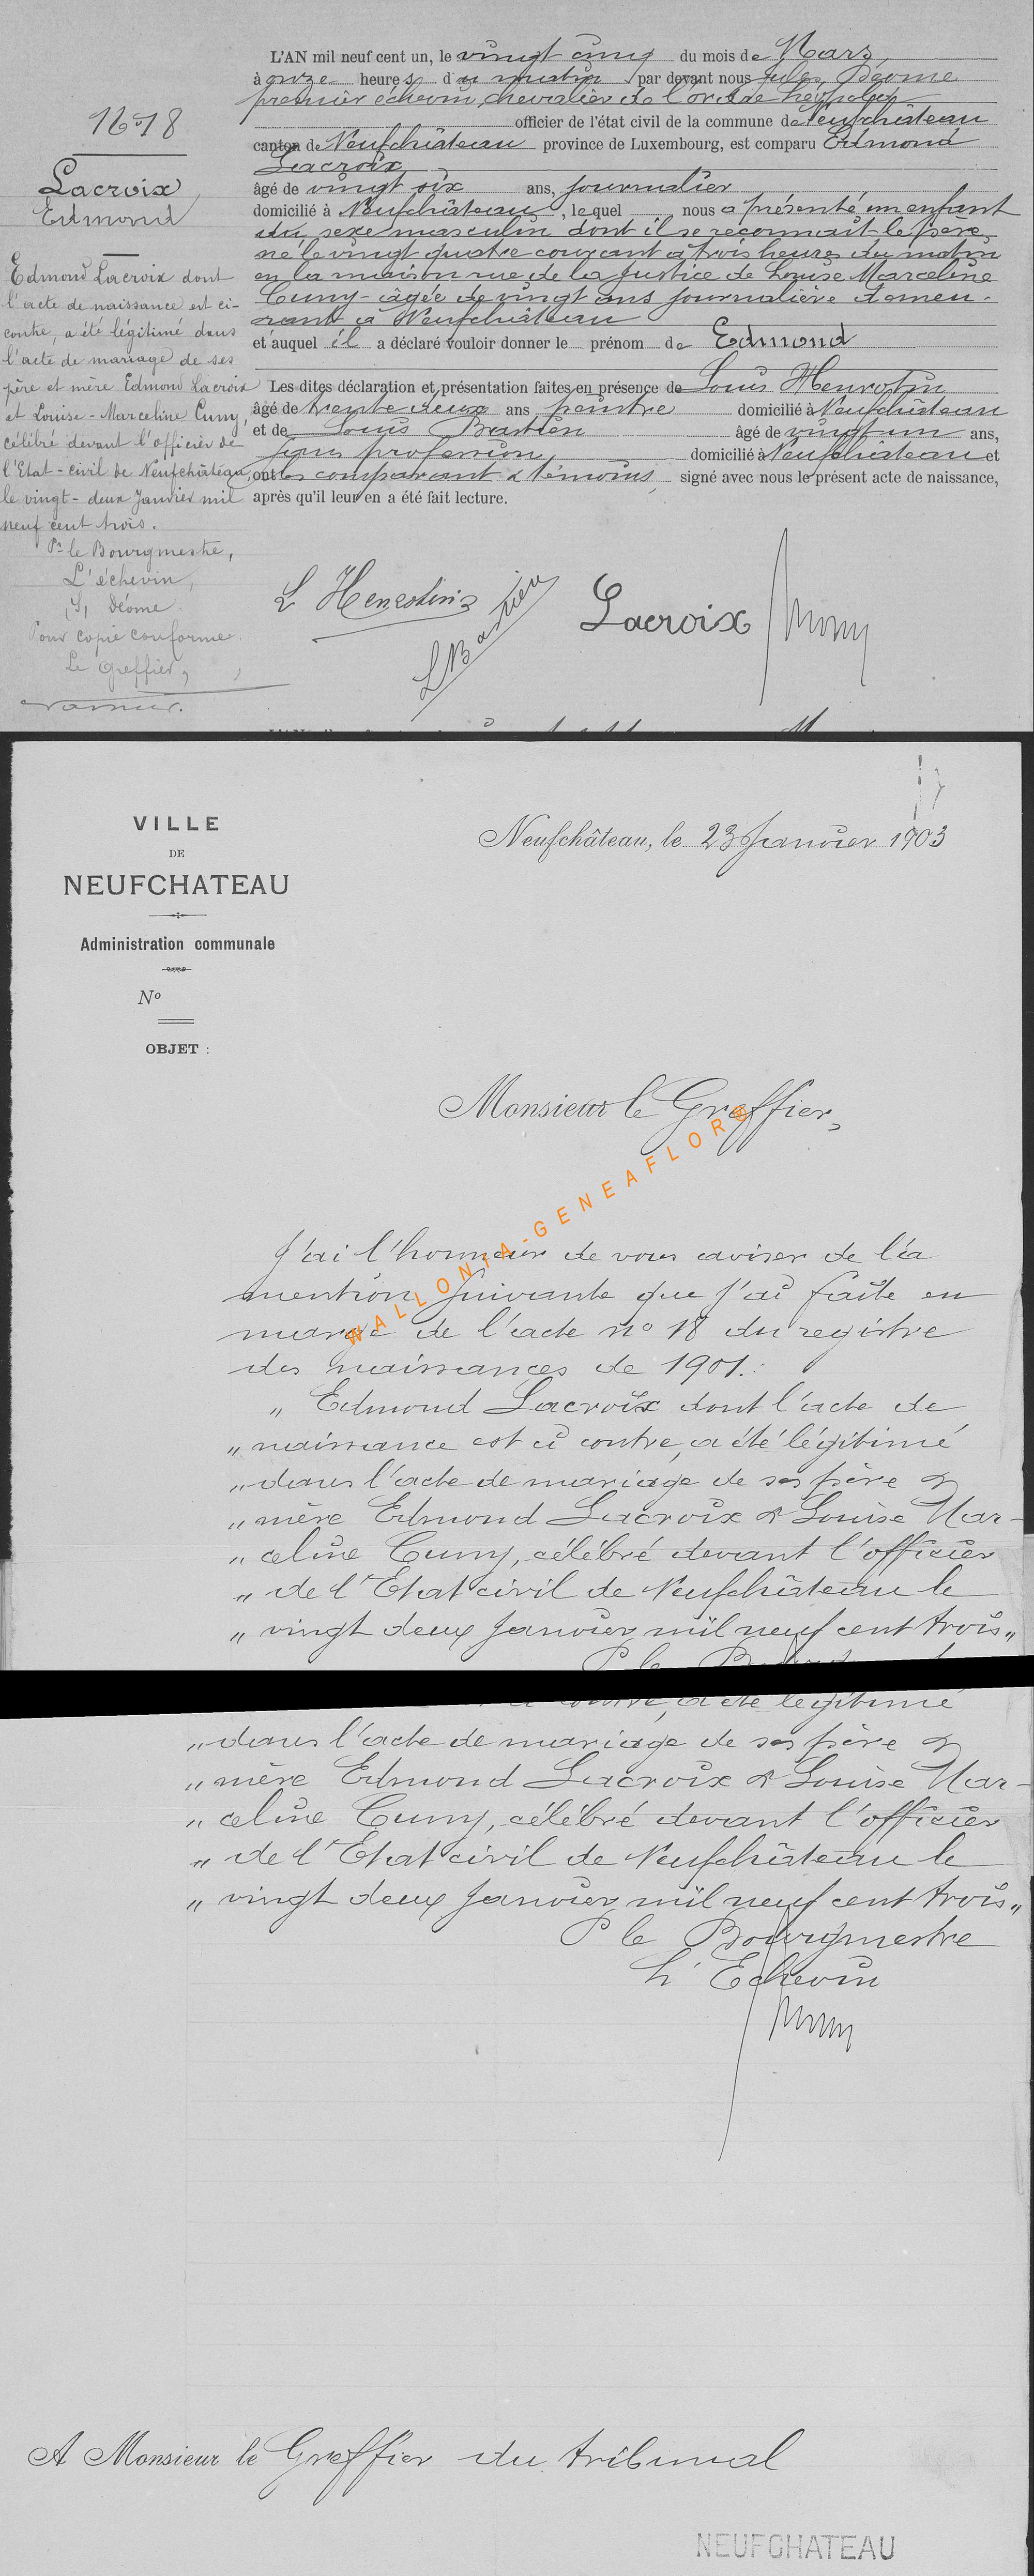 L'AN mil neuf cent un, le vingt cinq du mois de Mars,
à onze heures du matin par devant nous Jules Déome
premier échevin, chevalier de l'ordre Léopold
officier de l'état civil de la commune de Neufchâteau
canton de Neufchâteau province de Luxembourg, est comparu Edmond
Lacroix
âgé de vingt six ans, journalier
domicilié à Neufchâteau, lequel nous a présenté un enfant
du sexe masculin dont il se reconnaît le père,
né le vingt quatre courant à trois heures du matin
en la maison rue de la Justice de Louise Marceline
Cuny âgée de vingt ans journalière demeu-
rant à Neufchâteau
et auquel il a déclaré vouloir donner le prénom de Edmond
Les dites déclaration et présentation faites en présence de Louis Henrotin
âgé de trente deux ans peintre domicilié à Neufchâteau
et de Louis Bastien âgé de vingt un ans,
sans profession, domicilié à Neufchâteau et
ont les comparant & témoins, signé avec nous le présent acte de naissance,
après qu'il leur en a été fait lecture.
18
Lacroix
Edmond
Edmond Lacroix dont
l'acte de naissance est ci-
contre, a été légitimé dans
l'acte de mariage de ses
père et mère Edmond Lacroix
et Louise-Marceline Cuny,
célébré devant l'officier de
l'Etat-civil de Neufchâteau,
le vingt-deux Janvier mil
neuf cent trois.
Pr le Bourgmestre,
L'échevin,
Déome
Pour copie conforme.
Le Greffier,
L Henrotin
L Bastien
Lacroix
VILLE
DE
NEUFCHATEAU
Administration communale
No
OBJET :
Neufchâteau, le 23 Janvier 1903
Monsieur le Greffier,
WALLONIA-GENEAFLORE
J'ai l'honneur de vous aviser de la
mention suivante que j'ai faite en
marge de l'acte no 18 du registre
des naissances de 1901.:
„ Edmond Lacroix dont l'acte de
„ naissance est ci contre, a été légitimé
„ dans l'acte de mariage de ses père &
„ mère Edmond Lacroix & Louise Mar-
„ celine Cuny, célébré devant l'officier
„ de l'Etat civil de Neufchâteau le
„ vingt deux Janvier mil neuf cent trois„
contre, a été légitimé
„ dans l'acte de mariage de ses père &
„ mère Edmond Lacroix & Louise Mar-
„ celine Cuny, célébré devant l'officier
„ de l'Etat civil de Neufchâteau le
„ vingt deux Janvier mil neuf cent trois„
P le Bourgmestre
L'Echevin
A Monsieur le Greffier du tribunal
NEUFCHATEAU